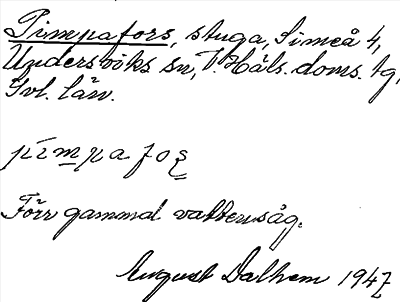 Pimpafors, stuga, Simeå 4,
Undersviks sn, V. Häls. doms. tg,
Gvl. län.
pìmpafo
Förr gammal vattensåg.
August Dalhem 1947